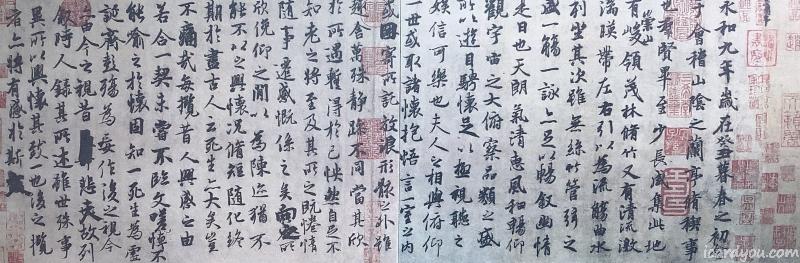 永和九年歲在癸丑暮春之初
于會稽山陰之蘭亭脩稧事
也群賢畢至少長咸集此地
有崇山峻領茂林脩竹又有清流激
湍暎帶左右引以為流觴曲水
列坐其次雖無絲竹管弦之
盛一觴一詠亦足以暢敘幽情
是日也天朗氣清惠風和暢仰
觀宇宙之大俯察品類之盛
所以遊目騁懷足以極視聽之
娛信可樂也夫人之相與俯仰
一世或取諸懷抱悟言一室之內
或因寄所託放浪形骸之外雖
趣舍萬殊靜躁不同當其欣
於所遇暫得於己怏然自足不
知老之將至及其所之既惓情
隨事遷感慨係之矣向之所
欣俛仰之閒以為陳迹猶不
能不以之興懷況脩短隨化終
期於盡古人云死生亦大矣豈
不痛哉每攬昔人興感之由
若合一契未嘗不臨文嗟悼不
能喻之於懷固知一死生為虛
誕齊彭殤為妄作後之視今
亦由今之視昔悲夫故列
敘時人錄其所述雖世殊事
異所以興懷其致一也後之攬
者亦將有感於斯
icardyou.com